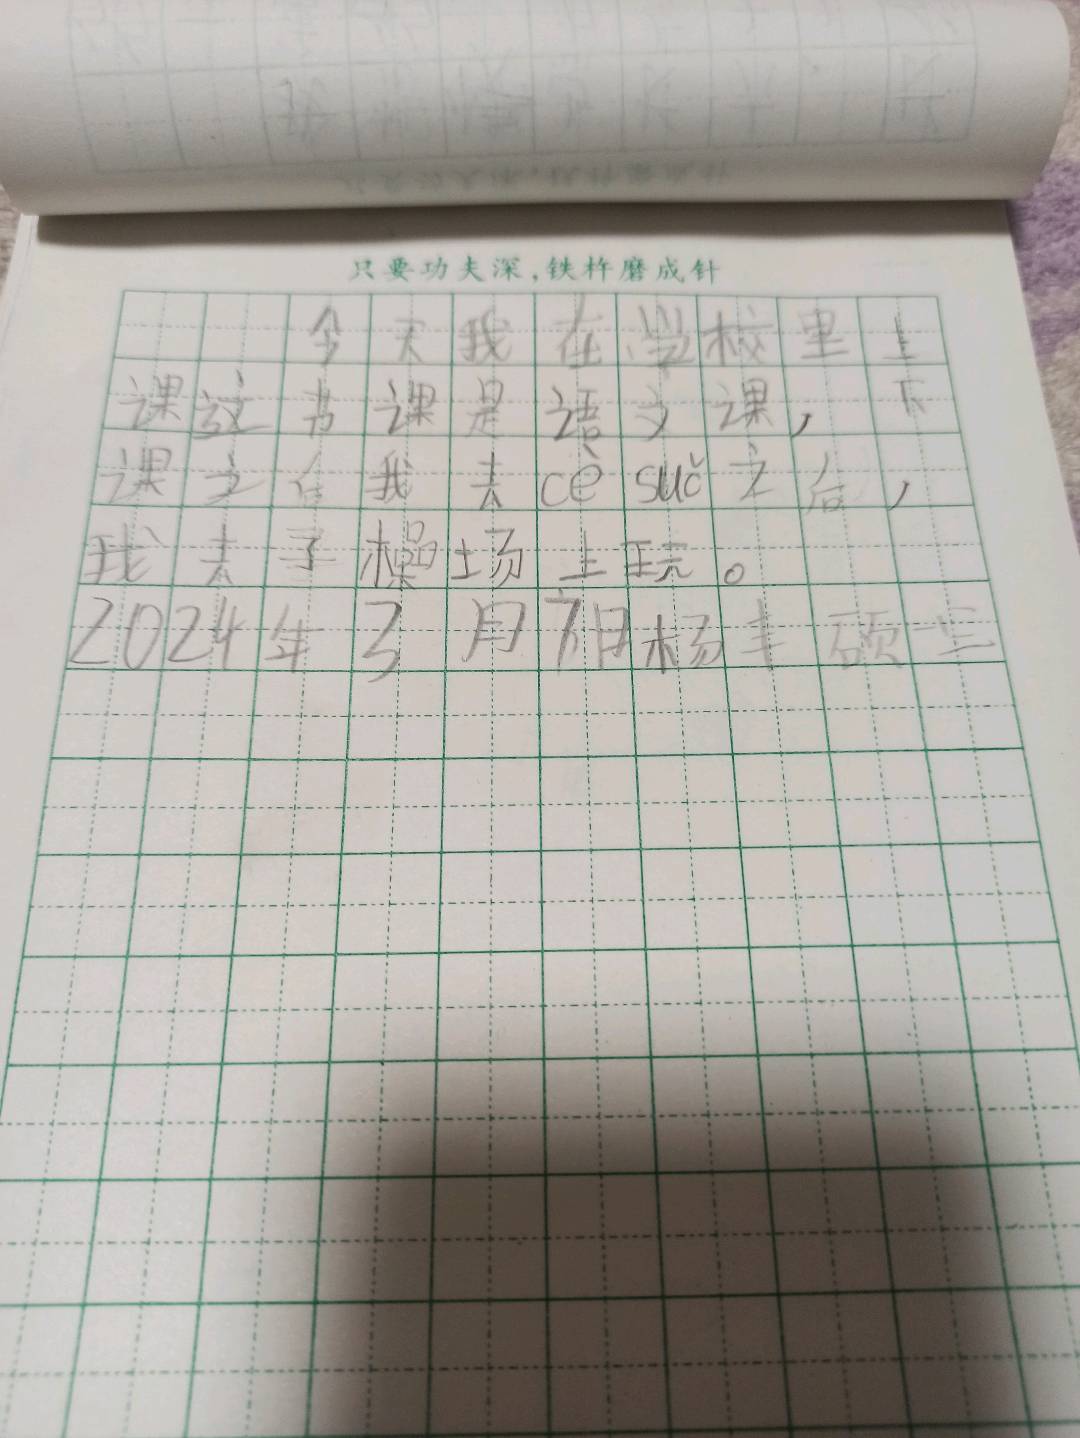 只要功夫深,铁杵磨成针
今天我在学校里上
课这书课是语文课,下
课之后我去cè suǒ之后,
我去了操场上玩。
2024年3月7日杨丰硕